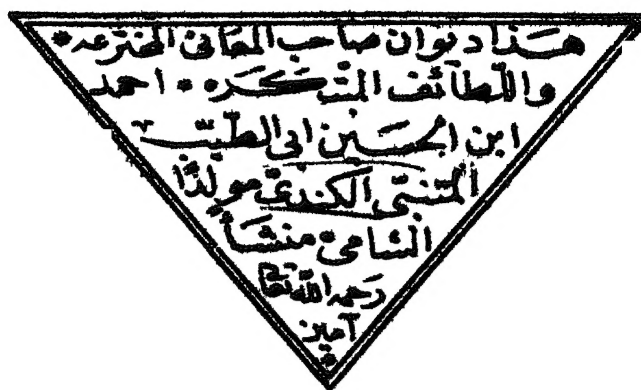 هذا ديوان صاحب المعاني المخترعه *
واللطائف المبتكره * * احمد
ابن الحسين ابى الطيّب
المتنبّى الكندىّ مولدًا
الشامىّ منشأً
رحمه الله تعا
آمين